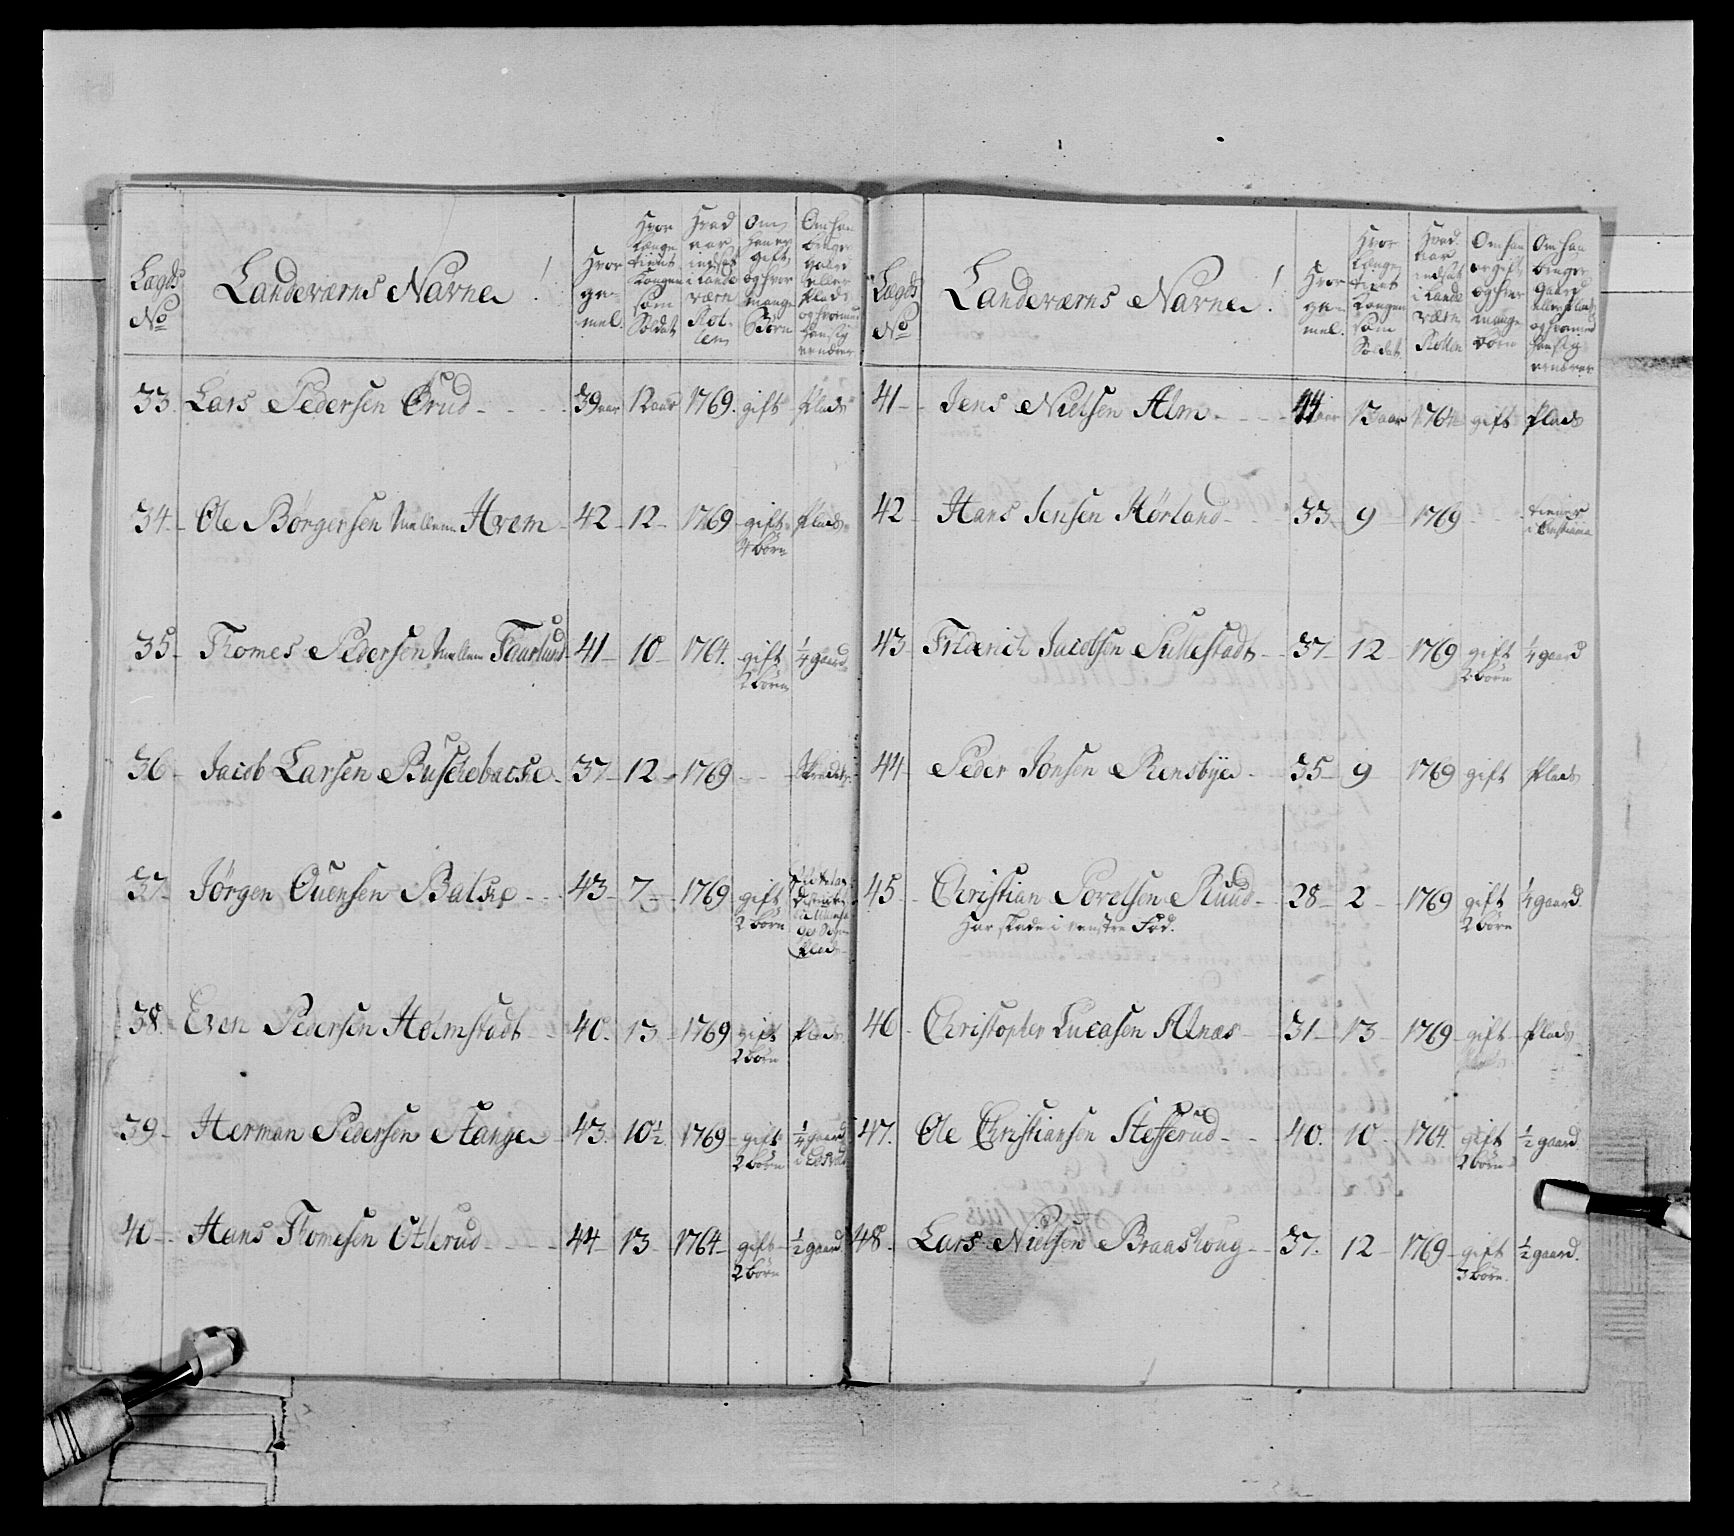 Lægds No
Landeværns Navne
Hvor gamel.
Hvor længe tient Kongen som Soldat
Hvad aar indsat i Lande værn Rollen
Om han er gift og hvor mange Börn
Om han bruger gaard eller Plads og hvormed han sig ernærer
33. Lars Pedersen Grud 39 aar 12 aar 1769. gift Plads
34 Ole Börgersen Mellem Hvem 42 12 1769 gift Plads
4 börn
35 Thomes Pedersen Mellem Faurlund 41 10 1764. gift 1/4 gaard
2 börn
36 Jacob Larsen Buschebacke 37 12 1769
37 Jörgen Ouensen Balche 43 7 1769 gift
2 börn Plads
38. Even Pedersen Holmstadt 40. 13 1769 gift Plads
2 börn
39 Herman Pedersen Stange 43. 10 1/2 1769 gift 1/4 gaard
2 börn
40 Hans Thomesen Otterud 44 13 1764 gift 1/2 gaard
2 börn
Lægds No
Landeværns Navne
Hvor gamel.
Hvor længe tient Kongen som Soldat.
Hvad aar indsat i Lande værn Rollen
Om han er gift og hvor mange börn
Om han bruger Gaard eller Plads og hvormed han sig ernærer
41 Jens Nielsen Alm 44 aar 13 aar 1764 gift Plads
42 Hans Jensen Hörland 33 9 1769 tiener
i Christiania
43 Friderich Jacobsen Sullestadt 37 12 1769 gift 1/4 gaard
2 börn
44 Peder Jonsen Rensbye 35 9 1769 gift Plads
45 Christian Povelsen Ruud 28 2 1769 gift 1/4 gaard.
Har skade i venstre Fod. 2 börn
46 Christopher Lucasen Alnæs 31 13 1769 gift Plads
47. Ole Christiansen Stefferud 40. 10 1764. gift 1/2 gaard
2 börn
48. Lars Nielsen Braastoug 37. 12 1769 gift 1/2 gaard.
3 börn.